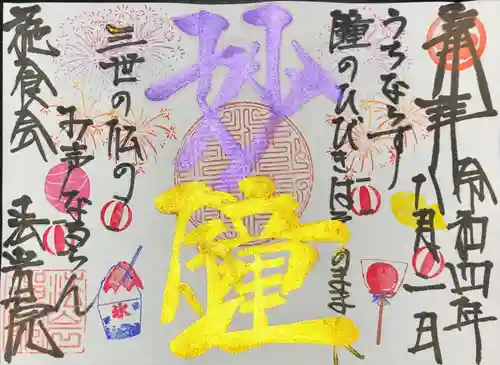 奉拝
令和四年
八月一日
うちならす
鐘のひびきはそのまま
妙
鐘
三世の仏の
み声なるらん
施食会
氷